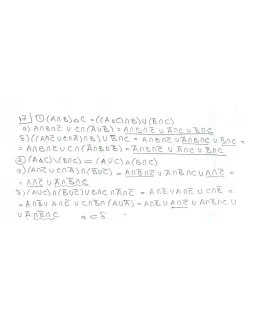 17] ① (A∩B)△C = ((A△C)∩B)∪(B̅∩C)
а) A∩B∩C̅ ∪ C∩(A̅∪B̅) = A∩B∩C̅ ∪ A̅∩C ∪ B̅∩C
б) ((A∩C̅ ∪ C∩A̅)∩B)∪B̅∩C = A∩B∩C̅ ∪ A̅∩B∩C ∪ B̅∩C =
= A∩B∩C̅ ∪ C∩(A̅∩B∪B̅) = A∩B∩C̅ ∪ A̅∩C ∪ B̅∩C
② (A△C)\(B∩C) ⊂ (A∪C)△(B∩C)
а) (A∩C̅ ∪ C∩A̅)∩(B̅∪C̅) = A∩B̅∩C̅ ∪ A̅∩B̅∩C ∪ A∩C̅ =
= A∩C̅ ∪ A̅∩B̅∩C
б) (A∪C)∩(B̅∪C̅) ∪ B∩C∩A̅∩C̅ = A∩B̅ ∪ A∩C̅ ∪ C∩B̅ =
= A∩B̅ ∪ A∩C̅ ∪ C∩B̅∩(A∪A̅) = A∩B̅ ∪ A∩C̅ ∪ A∩B̅∩C ∪
∪ A̅∩B̅∩C а ⊂ б